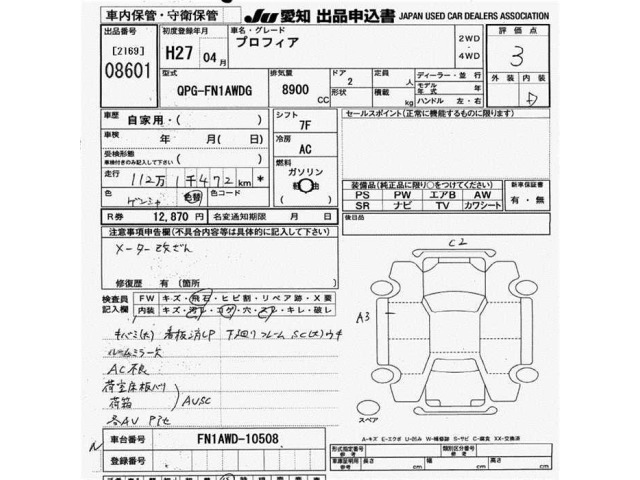 車内保管・守衛保管
JU 愛知 出品申込書 JAPAN USED CAR DEALERS ASSOCIATION
出品番号
[2169]
08601
初度登録年月
H27 04月
車名・グレード
プロフィア
2WD
4WD
評価点
3
外装 内装
D
型式
QPG-FN1AWDG
排気量
8900
CC
ドア
2
形状
定員
人
積載
kg
ディーラー・並行
モデル年式 年
ハンドル 左・右
車歴
自家用・( )
車検
年 月( 日)
受検形態
車検付きのみ記入して下さい
( )
走行
112万1千472 km *
色
ゲンシャ
色替
色コード
R券 12,870円 名変通知期限 月 日
シフト
7F
冷房
AC
燃料
ガソリン
軽油
( )
セールスポイント(正常に機能するものに限ります)
装備品(純正品に限り○をつけてください)
PS PW エアB AW
SR ナビ TV カワシート
新車保証書
有・無
後日品
注意事項申告欄(不具合内容等は具体的に記入して下さい)
メーター改ざん
修復歴 有(箇所 )
検査員
記入欄
FW キズ・飛石・ヒビ割・リペア跡・X要
内装 キズ・汚レ・コゲ・穴・スレ・キレ・破レ
キバミ(大) 看板消し P 下廻りフレーム SC(大)ウキ
ルームミラー欠
AC不良
荷室床板バリ
荷箱
AUSC
各AU P他
車台番号 FN1AWD-10508
登録番号
C2
A3
スペア
A-キズ E-エクボ U-凹み W-補修跡 S-サビ C-腐食 XX-交換済
形式指定番号 類別区分番号
車庫証明用 長さ cm 幅 cm 高さ cm